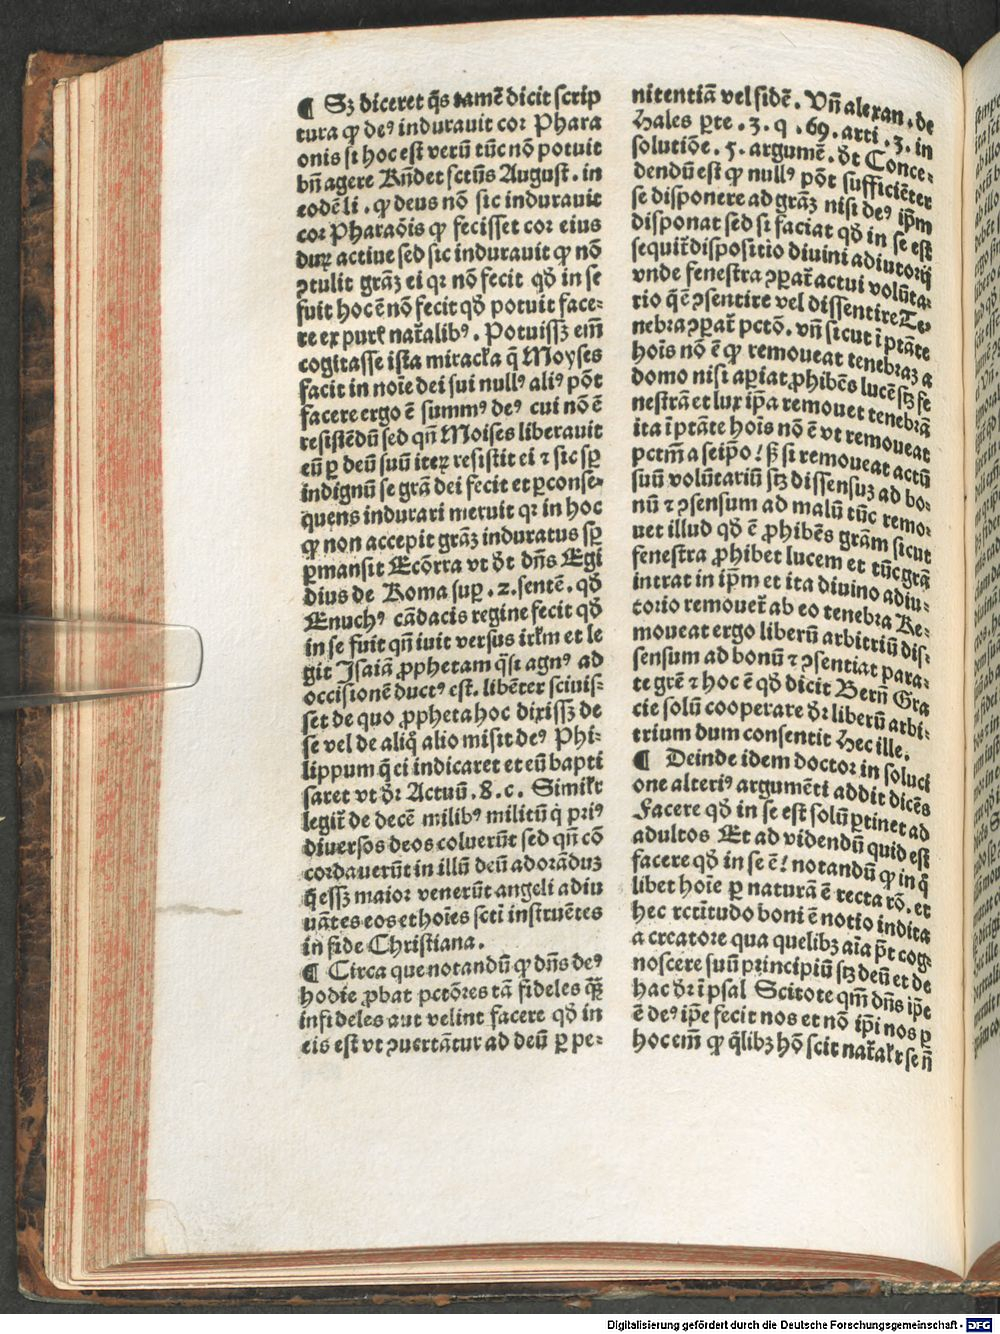 ¶ Sꝫ diceret q̄s tamē dicit scrip
tura ꝙ deꝰ indurauit cor Phara
onis si hoc est verū tūc nō potuit
bn̄ agere Rn̄det sctūs August. in
eodē li. ꝙ deus nō sic indurauit
cor Pharaōis ꝙ fecisset cor eius
duꝝ actiue sed sic indurauit ꝙ nō
ꝯtulit grāꝫ ei qꝛ nō fecit qḋ in se
fuit hoc ē nō fecit qḋ potuit face-
re ex puris nat̄alibꝰ. Potuissꝫ em̄
cogitasse ista miracla q̄ Moyses
facit in noīe dei sui nullꝰ aliꝰ pōt
facere ergo ē summꝰ deꝰ cui nō ē
resistēdū sed qn̄ Moises liberauit
eū ꝑ deū suū iteꝝ resistit ei ⁊ sic sꝑ
indignū se grā dei fecit et ꝑ conse-
quens indurari meruit qꝛ in hoc
ꝙ non accepit grāꝫ induratus sꝑ
ꝑmansit Ecōtra vt ḋt dn̄s Egi
dius de Roma suꝑ .2. sentē. qḋ
Enuchꝰ cādacis regine fecit qḋ
in se fuit qn̄ iuit versus irl̄m et le
git Isaiā ꝓphetam q̄si agnꝰ ad
occisionē ductꝰ est. libēter sciuis-
set de quo ꝓpheta hoc dixissꝫ de
se vel de aliq̄ alio misit deꝰ Phi-
lippum q̄ ei indicaret et eū bapti
saret vt ḋr Actuū. 8. c. Similr̄
legit̄ de decē milibꝰ militū q̇ priꝰ
diuersos deos coluerūt sed qn̄ cō
cordauerūt in illū deū adorāduꝫ
q̄ essꝫ maior venerūt angeli adiu
uātes eos et hoīes scti īnstruētes
in fide Christiana.
¶ Circa que notandū ꝙ dn̄s deꝰ
hodie ꝓbat pctōres tā fideles q̄ꝫ
infideles aut velint facere qḋ in
eis est vt ꝯuertātur ad deū ꝑ pe-
nitentiā vel fidē. Vn̄ alexan. de
Hales ꝑte .3. q. 69. arti .3. in
solutiōe. 5. argumē. ḋt Conce-
dendū est ꝙ nullꝰ pōt sufficiēter
se disponere ad grāꝫ nisi deꝰ ip̄m
disponat sed si faciat qḋ in se est
sequit̄ dispositio diuini adiutorij
vnde fenestra ꝯparat̄ actui volūta-
rio q̄ ē ꝯsentire vel dissentire Te-
nebra ꝯparat̄ pctō. vn̄ sicut ī ptāte
hoīs nō ē ꝙ remoueat tenebraꝫ a
domo nisi aꝑiat ꝓhibēs lucē sꝫ fe
nestrā et lux ip̄a remouet tenebrā
ita ī ptāte hoīs nō ē vt remoueat
pctm̄ a seip̄o! sꝫ si remoueat actū
suū volūtariū sꝫ dissensuꝫ ad bo-
nū ⁊ ꝯsensum ad malū tūc remo-
uet illud qḋ ē ꝓhibēs grām sicut
fenestra ꝓhibet lucem et tūc grā
intrat in ip̄m et ita diuino adiu-
torio remouet̄ ab eo tenebra Re-
moueat ergo liberū arbitriū dis-
sensum ad bonū ⁊ ꝯsentiat para-
te grē ⁊ hoc ē qḋ dicit Bern̄ Gra
cie solū cooperare ḋr liberū arbi-
trium dum consentit Hec ille.
¶ Deinde idem doctor in soluci
one alteriꝰ argumēti addit dicēs
Facere qḋ in se est solū ꝑtinet ad
adultos Et ad videndū quid est
facere qḋ in se ē! notandū ꝙ in q̄
libet hoīe ꝑ naturā ē recta rō. et
hec rctītudo boni ē notio indita
a creatore qua quelibꝫ aīa p̄t cog-
noscere suū principiū sꝫ deū et de
hac ḋr ī psal Scitote qm̄ dn̄s ip̄e
ē deꝰ ip̄e fecit nos et nō ip̄i nos ꝑ
hoc em̄ ꝙ q̄libꝫ hō scit nat̄alr̄ se n̄
Digitalisierung gefördert durch die Deutsche Forschungsgemeinschaft - DFG